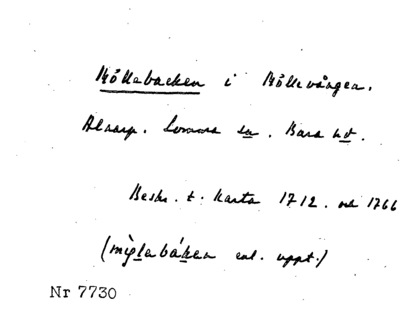 Möllebacken i Möllevången.
Alnarp. Lomma sn. Bara hd.
Beskr. t. karta 1712. och 1766
(möllabáken enl. uppt.)
Nr 7730